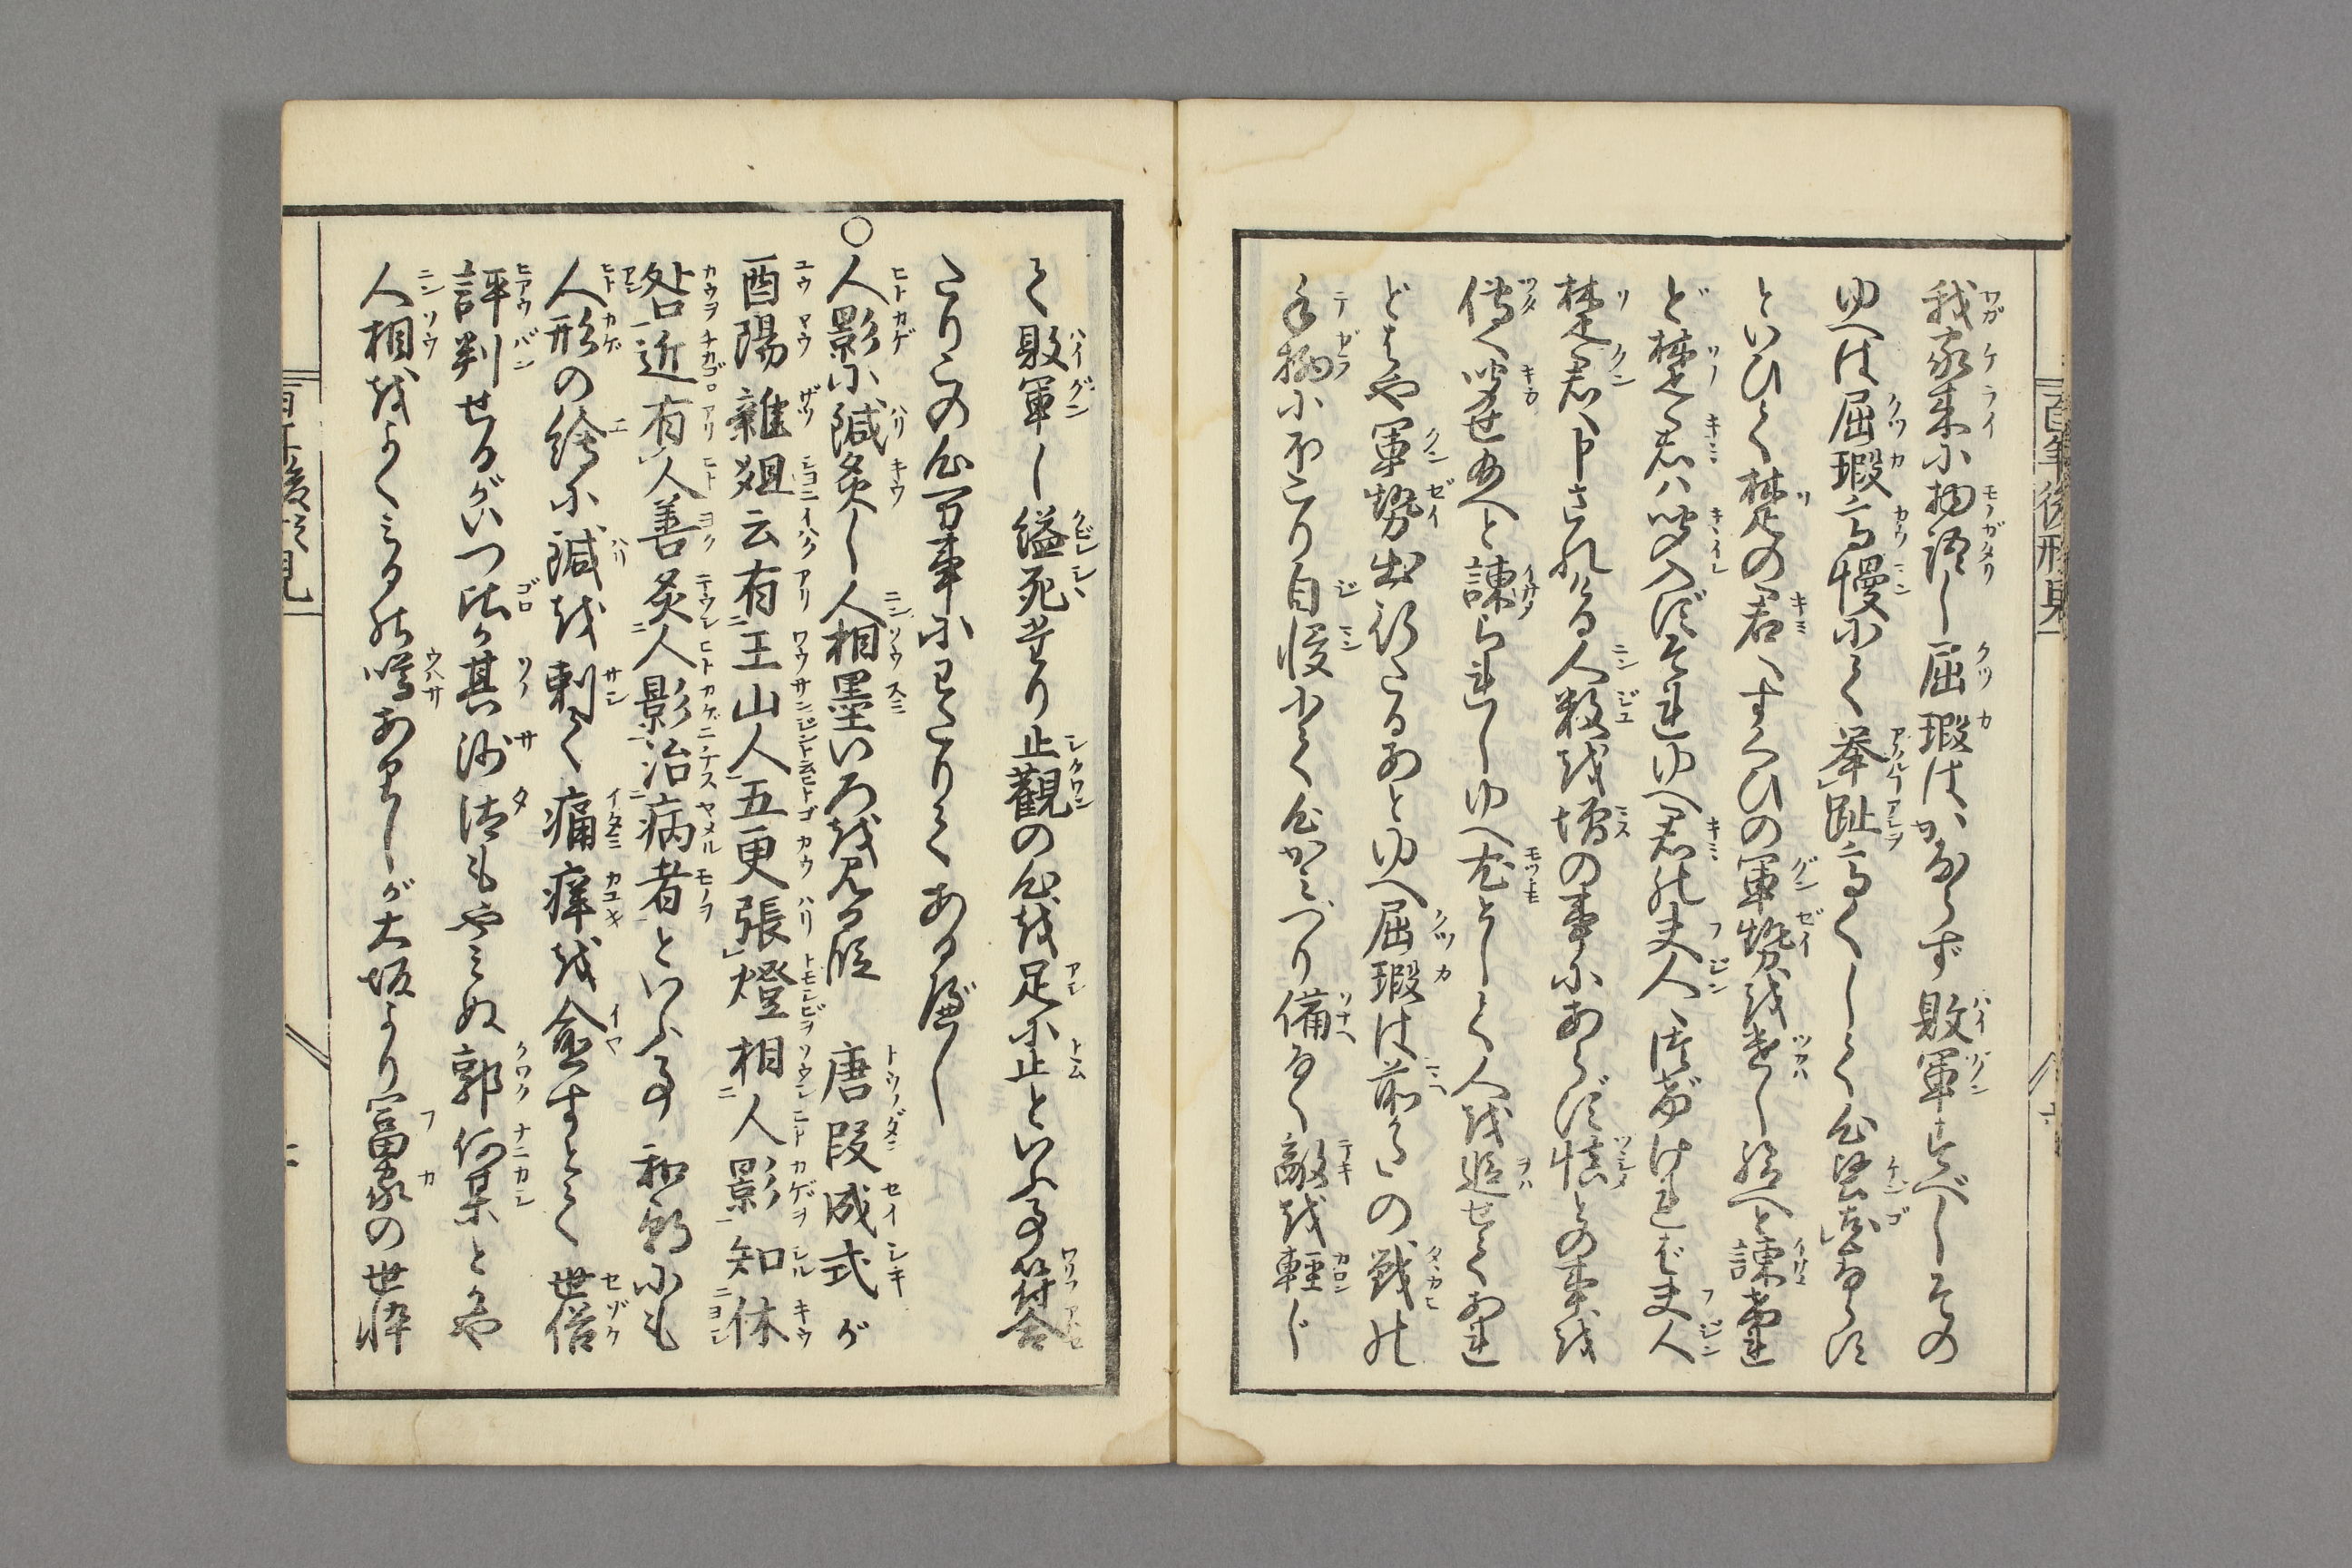 我家来に物語し屈瑕はかならず敗軍すべしその
ゆへは屈瑕高慢にて挙趾高くして心堅固ならず
といひて楚の君へすくひの軍勢を遣し給へと諫けれ
ど楚の君ハ聞入ずそれゆへ君の夫人へ告げければ夫人
楚君へ申されける人数を増の事にあらず慎との事を
傳へ聞せ給へと諫られしゆへ尤として人を追せておれ
どもはや軍勢出行たるあとゆへ屈瑕は前々の戦の
手抦にほこり自慢にて心かさづり備なく敵を軽じ
て敗軍し縊死せり止観の心を足に止といふ事符合
たりこの心万事にわたりてある歟し
○人影に鍼灸し人相墨いろを見る段　唐段成式が
酉陽雑爼云有王山人五更張燈相人影知休
咎近有人善灸人影治病者といふ事和朝にも
人形の絵に鍼を刺て痛痒を愈すとて世俗
評判せるがいつ比か其沙汰もやみぬ郭何某とかや
人相をよくみるの噂ありしが大坂より冨家の世悴